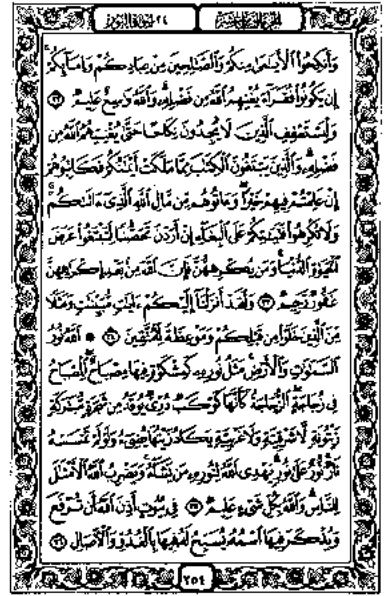 الجزء الثامن عشر
٢٤ سورة النور
وَأَنكِحُوا۟ ٱلْأَيَـٰمَىٰ مِنكُمْ وَٱلصَّـٰلِحِينَ مِنْ عِبَادِكُمْ وَإِمَآئِكُمْ ۚ
إِن يَكُونُوا۟ فُقَرَآءَ يُغْنِهِمُ ٱللَّهُ مِن فَضْلِهِۦ ۗ وَٱللَّهُ وَٰسِعٌ عَلِيمٌ ٣٢
وَلْيَسْتَعْفِفِ ٱلَّذِينَ لَا يَجِدُونَ نِكَاحًا حَتَّىٰ يُغْنِيَهُمُ ٱللَّهُ مِن
فَضْلِهِۦ ۗ وَٱلَّذِينَ يَبْتَغُونَ ٱلْكِتَـٰبَ مِمَّا مَلَكَتْ أَيْمَـٰنُكُمْ فَكَاتِبُوهُمْ
إِنْ عَلِمْتُمْ فِيهِمْ خَيْرًا ۖ وَءَاتُوهُم مِّن مَّالِ ٱللَّهِ ٱلَّذِىٓ ءَاتَىٰكُمْ ۚ
وَلَا تُكْرِهُوا۟ فَتَيَـٰتِكُمْ عَلَى ٱلْبِغَآءِ إِنْ أَرَدْنَ تَحَصُّنًا لِّتَبْتَغُوا۟ عَرَضَ
ٱلْحَيَوٰةِ ٱلدُّنْيَا ۚ وَمَن يُكْرِههُّنَّ فَإِنَّ ٱللَّهَ مِنۢ بَعْدِ إِكْرَٰهِهِنَّ
غَفُورٌ رَّحِيمٌ ٣٣ وَلَقَدْ أَنزَلْنَآ إِلَيْكُمْ ءَايَـٰتٍ مُّبَيِّنَـٰتٍ وَمَثَلًا
مِّنَ ٱلَّذِينَ خَلَوْا۟ مِن قَبْلِكُمْ وَمَوْعِظَةً لِّلْمُتَّقِينَ ٣٤ * ٱللَّهُ نُورُ
ٱلسَّمَـٰوَٰتِ وَٱلْأَرْضِ ۚ مَثَلُ نُورِهِۦ كَمِشْكَوٰةٍ فِيهَا مِصْبَاحٌ ۖ ٱلْمِصْبَاحُ
فِى زُجَاجَةٍ ۖ ٱلزُّجَاجَةُ كَأَنَّهَا كَوْكَبٌ دُرِّىٌّ يُوقَدُ مِن شَجَرَةٍ مُّبَـٰرَكَةٍ
زَيْتُونَةٍ لَّا شَرْقِيَّةٍ وَلَا غَرْبِيَّةٍ يَكَادُ زَيْتُهَا يُضِىٓءُ وَلَوْ لَمْ تَمْسَسْهُ
نَارٌ ۚ نُّورٌ عَلَىٰ نُورٍ ۗ يَهْدِى ٱللَّهُ لِنُورِهِۦ مَن يَشَآءُ ۚ وَيَضْرِبُ ٱللَّهُ ٱلْأَمْثَـٰلَ
لِلنَّاسِ ۗ وَٱللَّهُ بِكُلِّ شَىْءٍ عَلِيمٌ ٣٥ فِى بُيُوتٍ أَذِنَ ٱللَّهُ أَن تُرْفَعَ
وَيُذْكَرَ فِيهَا ٱسْمُهُۥ يُسَبِّحُ لَهُۥ فِيهَا بِٱلْغُدُوِّ وَٱلْـَٔاصَالِ ٣٦
٣٥٤